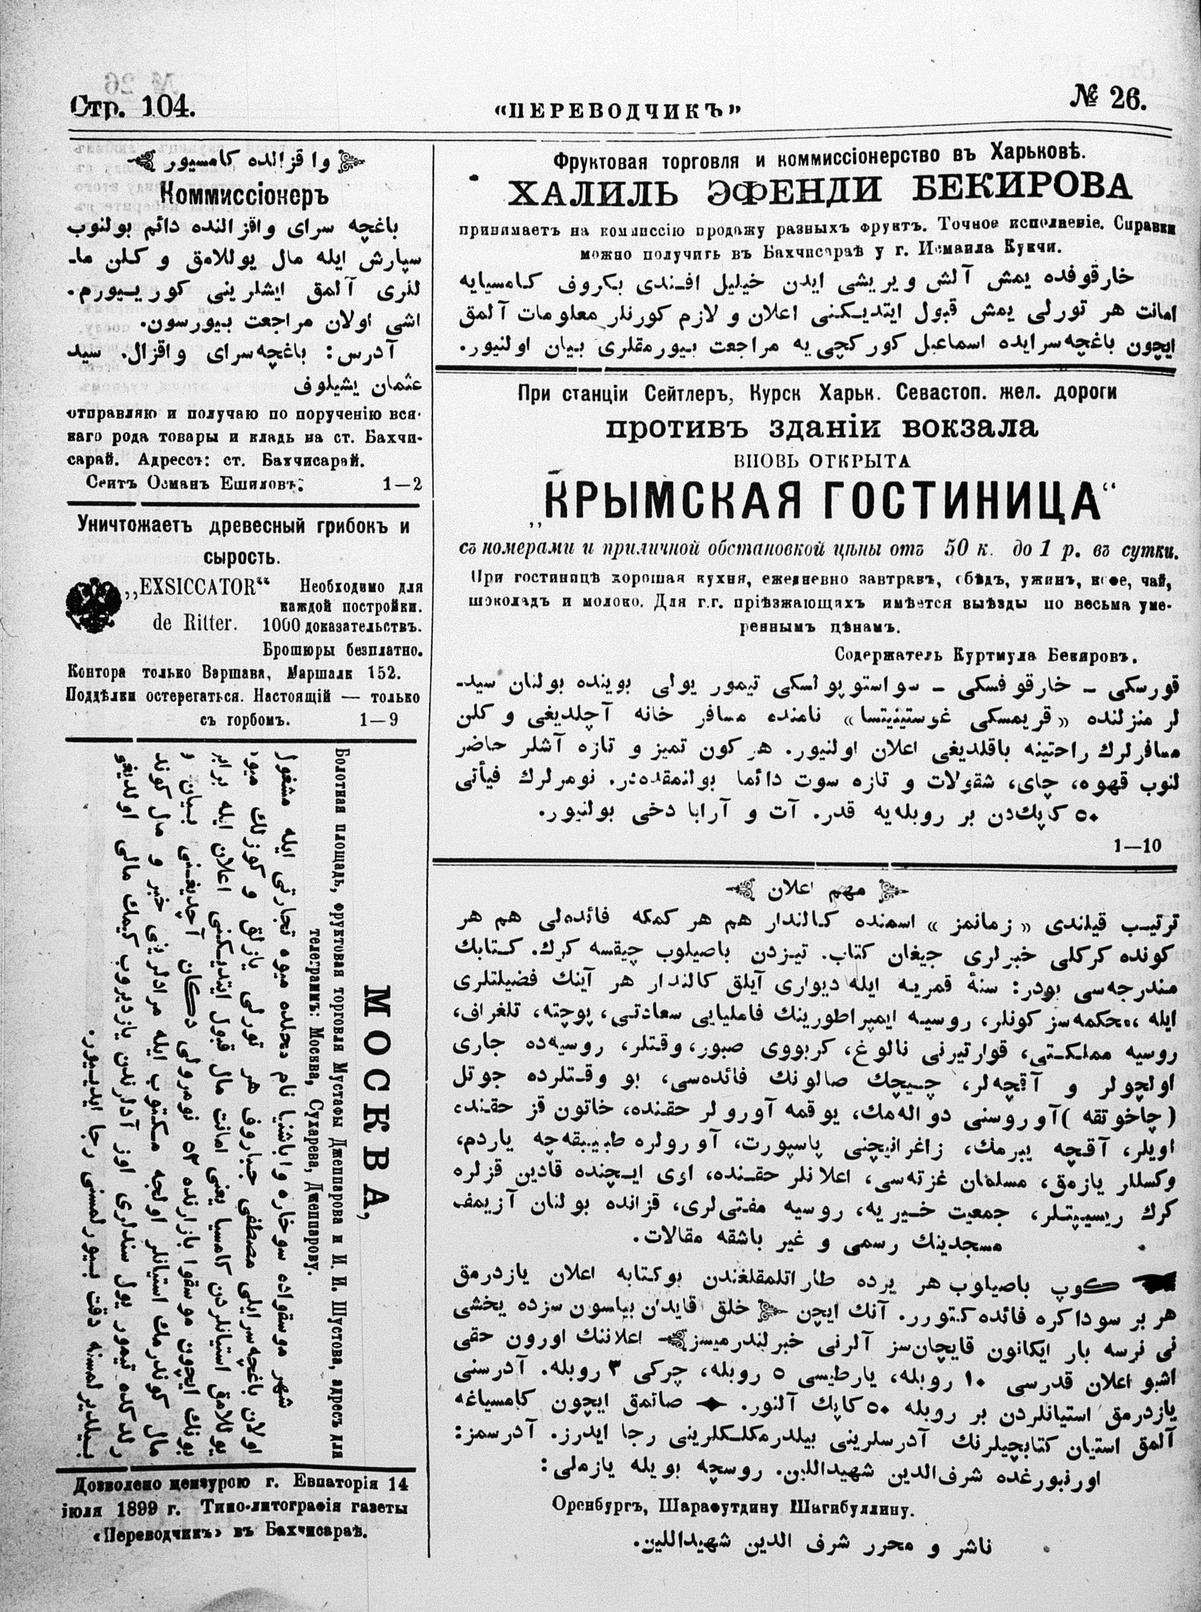 Стр. 104.
«ПЕРЕВОДЧИКЪ»
№ 26.
واقزالده كامسيور
Коммиссіонеръ
باغچه سرای واقزالنده دائم بولنوب
سپارش ايله مال يوللامق و كلن ما-
لری آلمق ايشلرينی كوريیورم.
اشی اولان مراجعت بيورسون.
آدرس: باغچه‌سرای واقزال. سيد
عثمان يشيلوف
отправляю и получаю по порученію вся-
каго рода товары и кладь на ст. Бахчи-
сарай. Адрессъ: ст. Бахчисарай.
Сеитъ Османъ Ешиловъ. 1—2
Уничтожаетъ древесный грибокъ и
сырость.
„EXSICCATOR“
de Ritter.
Необходимо для
каждой постройки.
1000 доказательствъ.
Брошюры безплатно.
Контора только Варшава, Маршалк 152.
Поддѣлки остерегаться. Настоящій — только
съ горбомъ. 1—9
МОСКВА,
Болотная площадь, фруктовая торговля Мустафы Джеппарова и И. И. Шустова, адресъ для
телеграммъ: Москва, Сухарева, Джеппарову.
شهر موسقواده سوخاره واباشنيا نام محلده ميوه تجارتی ايله مشغول
اولان باغچه‌سرايلی مصطفی جباروف هر تورلی يازلق و كوزلك ميوه
يوللامق استيانلردن كامسيا يعنی امانت مال قبول ايتديكنی اعلان ايله برابر
بونك ايچون موسقوا بازارنده ٥٣ نومرولی دكان آچديغنی بيان و
مال كوندرمك استيانلر اولجه مكتوب ايله مرادلرينی خبر و مال كوند
رلدكده تيمور يول سندلری اوز آدلرندن يازديروب كيمك مالی اولديغی
بيلديرلمسنه دقت بيورلمسنی رجا ايدييور.
Дозволено цензурою г. Евпаторія 14
іюля 1899 г. Типо-литографія газеты
«Переводчикъ» въ Бахчисараѣ.
Фруктовая торговля и коммиссіонерство въ Харьковѣ.
ХАЛИЛЬ ЭФЕНДИ БЕКИРОВА
принимаетъ на комиссію продажу разныхъ фруктъ. Точное исполненіе. Справки
можно получить въ Бахчисараѣ у г. Исмаила Кукчи.
خارقوفده يمش آلش ويريشی ايدن خيليل افندی بكروف كامسيايه
امانت هر تورلی يمش قبول ايتديكنی اعلان و لازم كورنلر معلومات آلمق
ايچون باغچه‌سرايده اسماعيل كوركچی يه مراجعت بيورمقلری بيان اولنيور.
При станціи Сейтлеръ, Курск Харьк. Севастоп. жел. дороги
противъ зданіи вокзала
ВНОВЬ ОТКРЫТА
„КРЫМСКАЯ ГОСТИНИЦА“
съ номерами и приличной обстановкой цѣны отъ 50 к. до 1 р. въ сутки.
При гостиницѣ хорошая кухня, ежедневно завтракъ, обѣдъ, ужинъ, кофе, чай,
шоколадъ и молоко. Для г.г. пріѣзжающихъ имѣется выѣзды по весьма уме-
реннымъ цѣнамъ.
Содержатель Куртмула Бекировъ.
قورسكی - خارقوفسكی - سواستوپولسكی تيمور يولی بوينده بولنان سيد-
لر منزلنده «قريمسكی غوستينيتسا» نامنده مسافر خانه آچلديغی و كلن
مسافرلرك راحتينه باقلديغی اعلان اولنيور. هر كون تميز و تازه آشلر حاضر
لنوب قهوه، چای، شقولات و تازه سوت دائما بولنمقده‌در. نومرلرك فيأتی
٥٠ كاپك‌دن بر روبله‌يه قدر. آت و آرابا دخی بولنيور.
1—10
مهم اعلان
ترتيب قيلندی «زمانمز» اسمنده كالندار هم هر كمكه فائده‌لی هم هر
كونده كركلی خبرلری جيغان كتاب. تيزدن باصيلوب چيقسه كرك. كتابك
مندرجه‌سی بودر: سنۀ قمريه ايله ديواری آيلق كالندار هر آينك فضيلتلری
ايله، محكمه‌سز كونلر، روسيه ايمپراطورينك فاميليايی سعادتی، پوچته، تلغراف،
روسيه مملكتی، قوارتيرنی نالوغ، كربووی صبور، وقتلر، روسيه‌ده جاری
اولچولر و آقچه‌لر، چيچك صالونك فائده‌سی، بو وقتلرده جوتل
(چاخوتقه) آوروسنی دواله‌مك، يوقمه آورولر حقنده، خاتون قز حقنده
اويلر، آقچه ييرمك، زاغرانيچنی پاسپورت، آورولره طبيبقه‌چه ياردم،
وكسللر يازمق، مسلمان غزته‌سی، اعلانلر حقنده، ايی ايچنده قادين قزلره
كرك ريسيپتلر، جمعيت خيريه، روسيه مفتی‌لری، قزانده بولنان آزيمف
مسجدينك رسمی و غير باشقه مقالات.
كوپ باصيلوب هر يرده طاراتلمقلغندن بوكتابه اعلان يازدرمق
هر بر سوداكره فائده كتورر. آنك ايچن خلق قايدان بياسون سزده يخشی
نی نرسه بار ايكانون قايچان‌سز آلرنی خبرلندرميسز اعلاننك اورون حقی
اشبو اعلان قدرسی ١٠ روبله، يارطيسی ٥ روبله، چركی ٣ روبله. آدرسنی
يازدرمق استيانلردن بر روبله ٥٠ كاپك آلنور. صاتمق ايچون كامسياغه
آلمق استيان كتابچيلرنك آدرسلرينی بيلدرمكلكلرينی رجا ايدرز. آدرسمز:
اورنبورغده شرف‌الدين شهيداللين. روسچه بويله يازملی:
Оренбургъ, Шарафутдину Шагибуллину.
ناشر و محرر شرف الدين شهيداللين.